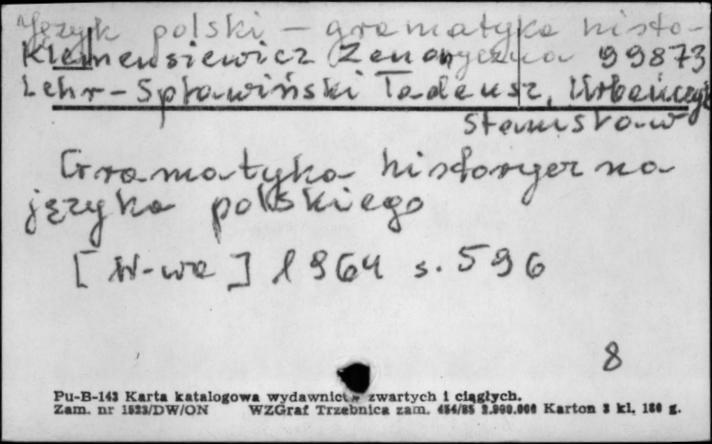 Język polski - gramatyka histo-
ryczna
Klemensiewicz Zenon 99873
Lehr-Spławiński Tadeusz, Urbańczyk
Stanisław
Gramatyka historyczna
języka polskiego
[W-wa] 1964 s. 596
8
Pu-B-143 Karta katalogowa wydawnictw zwartych i ciągłych.
Zam. nr 1523/DW/ON WZGraf Trzebnica zam. 454/85 2.900.000 Karton 3 kl. 180 g.